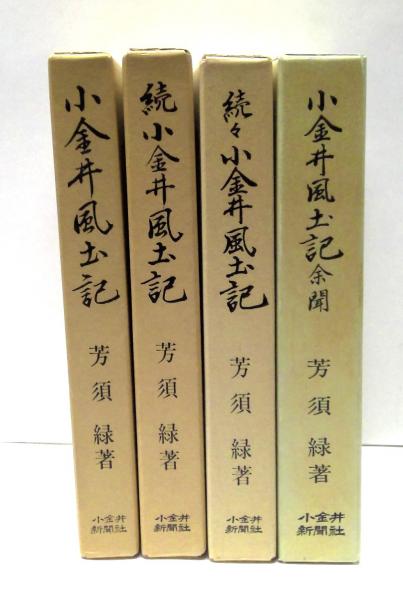 小金井風土記
芳須緑著
小金井
新聞社
続小金井風土記
芳須緑著
小金井
新聞社
続々小金井風土記
芳須緑著
小金井
新聞社
小金井風土記余聞
芳須緑著
小金井
新聞社